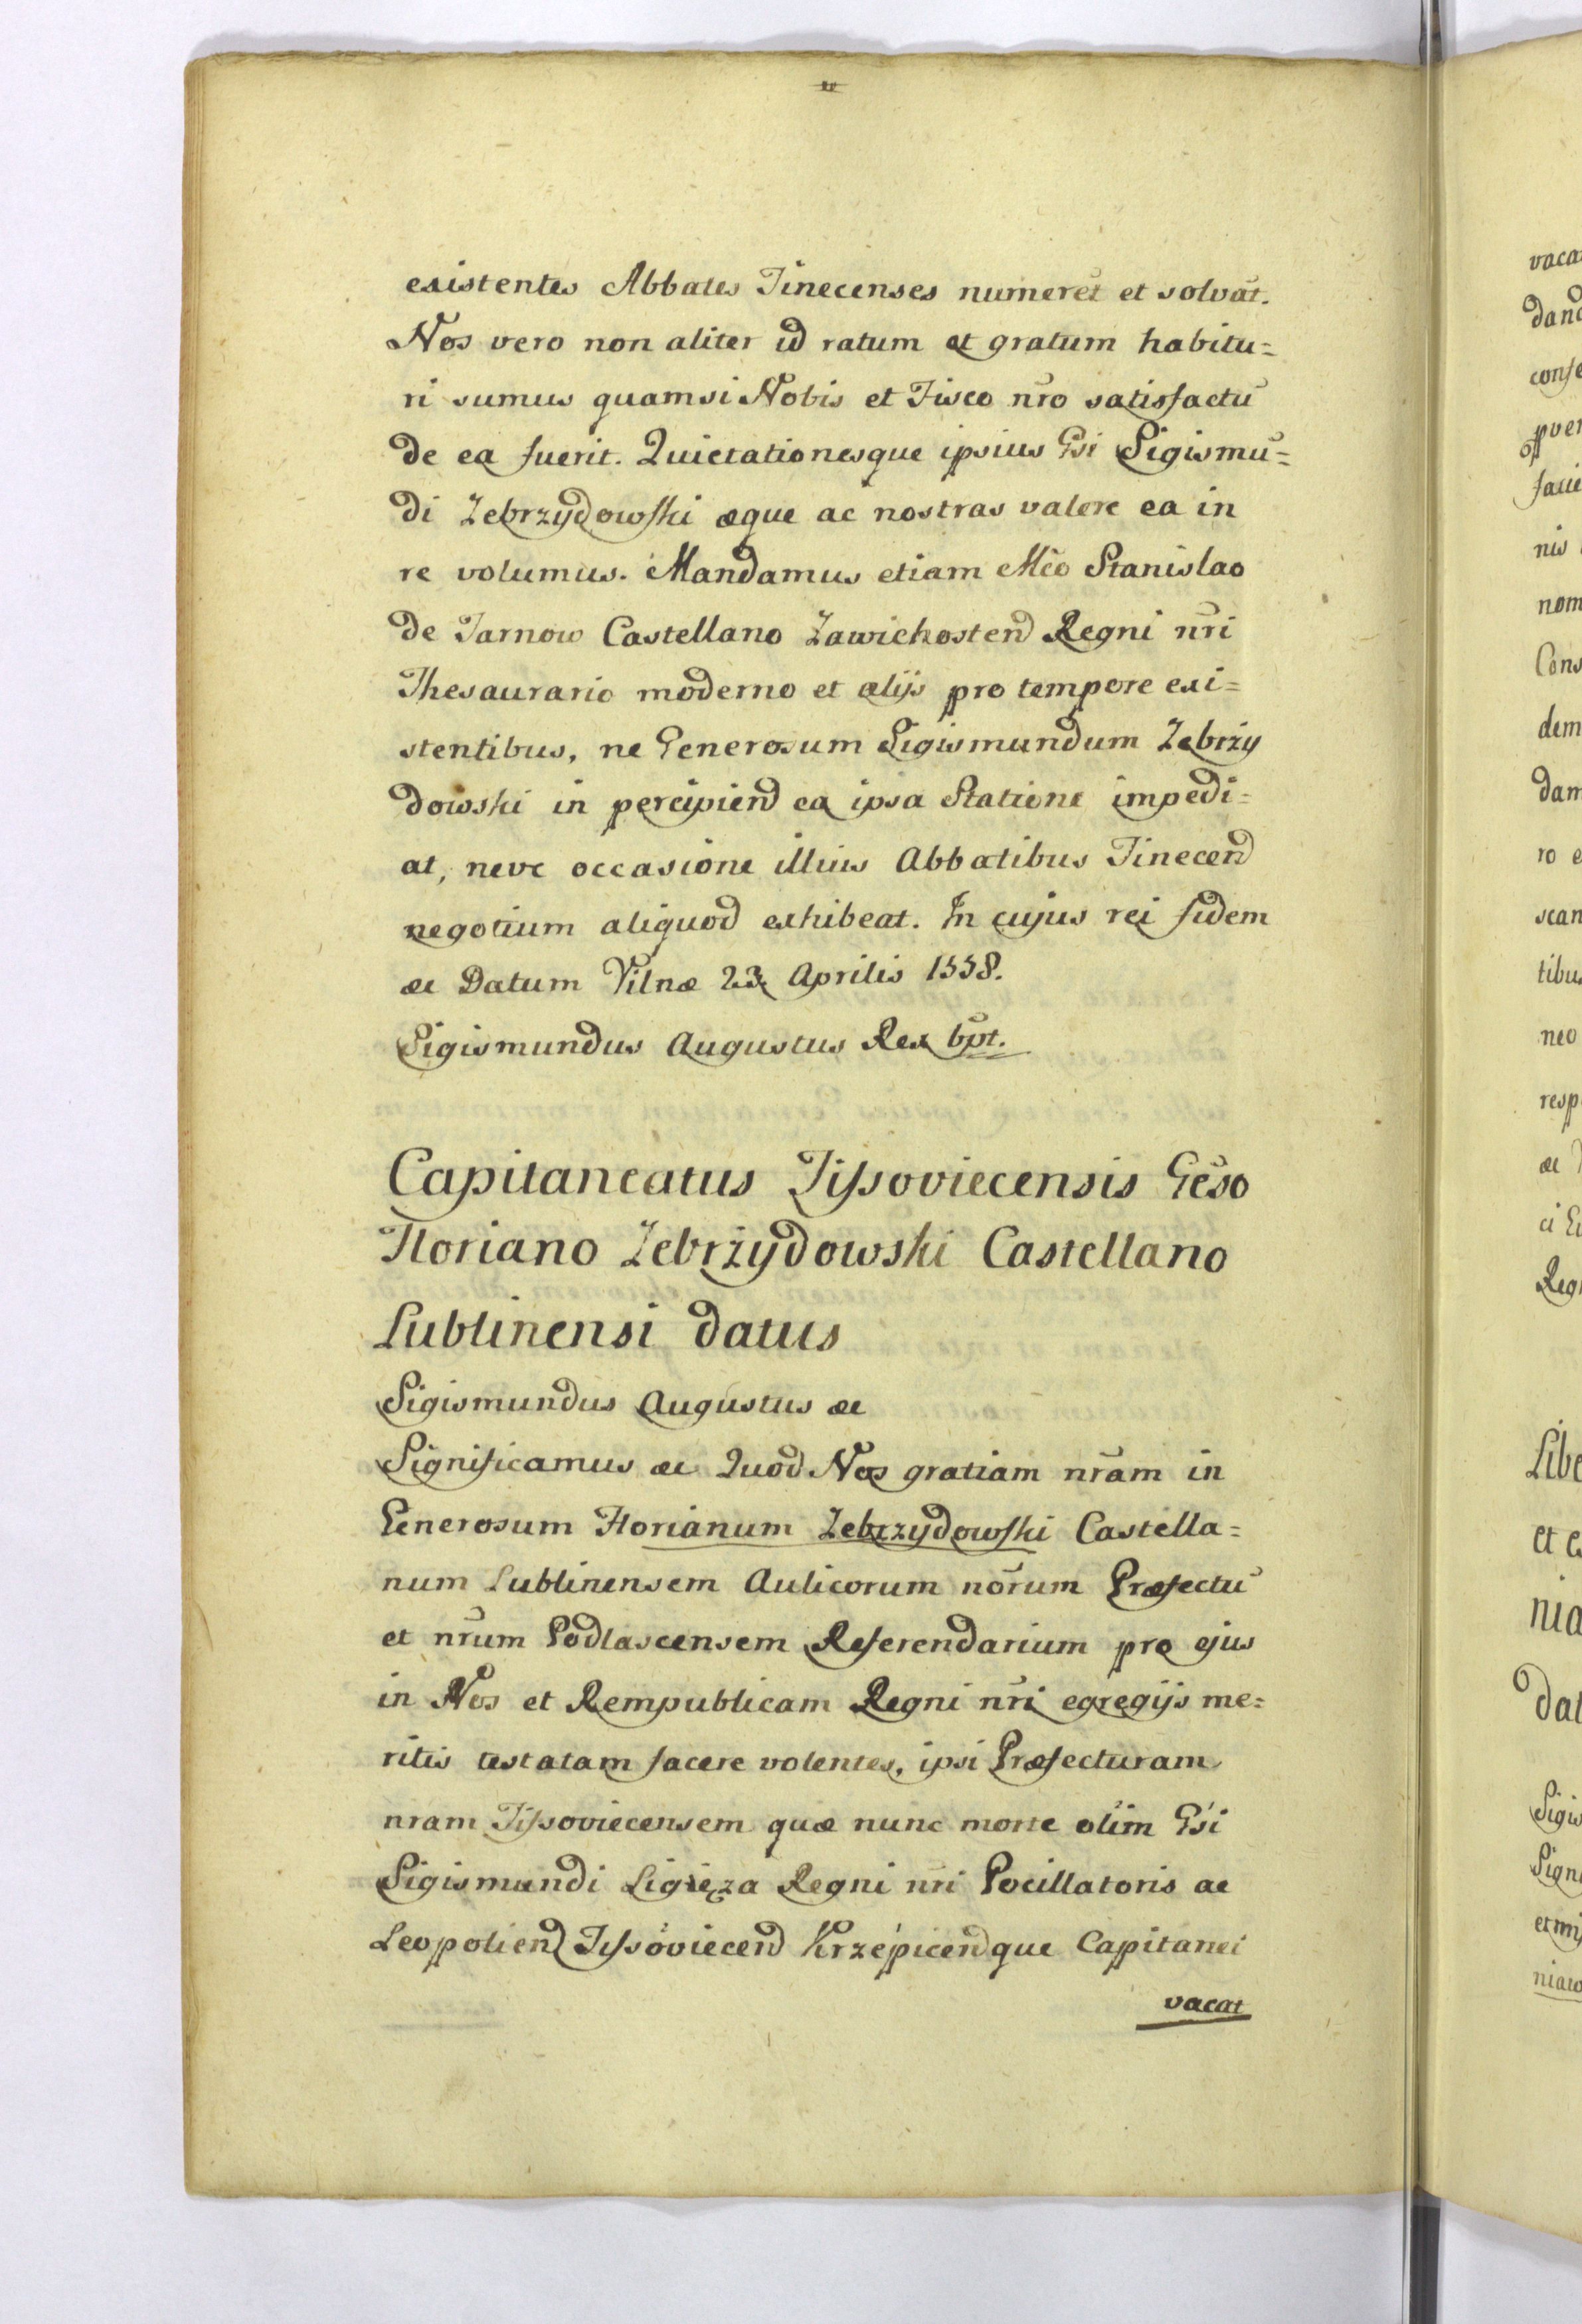 existentes Abbates Tinecenses numeret̄ et solvat̄.
Nos vero non aliter id ratum et gratum habitu=
ri sumus quamsi Nobis et Fisco nr̄o satisfactū
de ea fuerit. Quietationesque ipsius Gsi Sigismū=
di Zebrzydowski æque ac nostras valere ea in
re volumus. Mandamus etiam Mc̄o Stanislao
de Tarnow Castellano Zawichosten Regni nr̄i
Thesaurario moderno et alijs pro tempore exi=
stentibus, ne Generosum Sigismundum Zebrży
dowski in percipien ea ipsa Statione impedi=
at, neve occasione illius Abbatibus Tinecen
negotium aliquod exhibeat. In cujus rei fidem
æc Datum Vilnæ 23 Aprilis 1558.
Sigismundus Augustus Rex sp̄t.
Capitaneatus Tissoviecensis Gēso
Floriano Zebrżydowski Castellano
Lublinensi datus
Sigismundus Augustus æc
Significamus æc Quod Nos gratiam nr̄am in
Generosum Florianum Zebrzydowski Castella=
num Lublinensem Aulicorum nōrum Præfectū
et nr̄um Podlascensem Referendarium pro ejus
in Nos et Rempublicam Regni nr̄i egregijs me=
ritis testatam facere volentes, ipsi Præfecturam
nram Tissoviecensem quæ nunc morte olim Gsi
Sigismundi Ligięza Regni nr̄i Pocillatoris ac
Leopolien Tissoviecen Krzepicenque Capitanei
vacat
vaca
dan
conse
pver
facie
nis
nom
Cons
dem
dam
ro e
scan
tibu
neo
resp
æc
ci
Reg
Libe
et e
nia
dat
Sigis
Signi
niaw